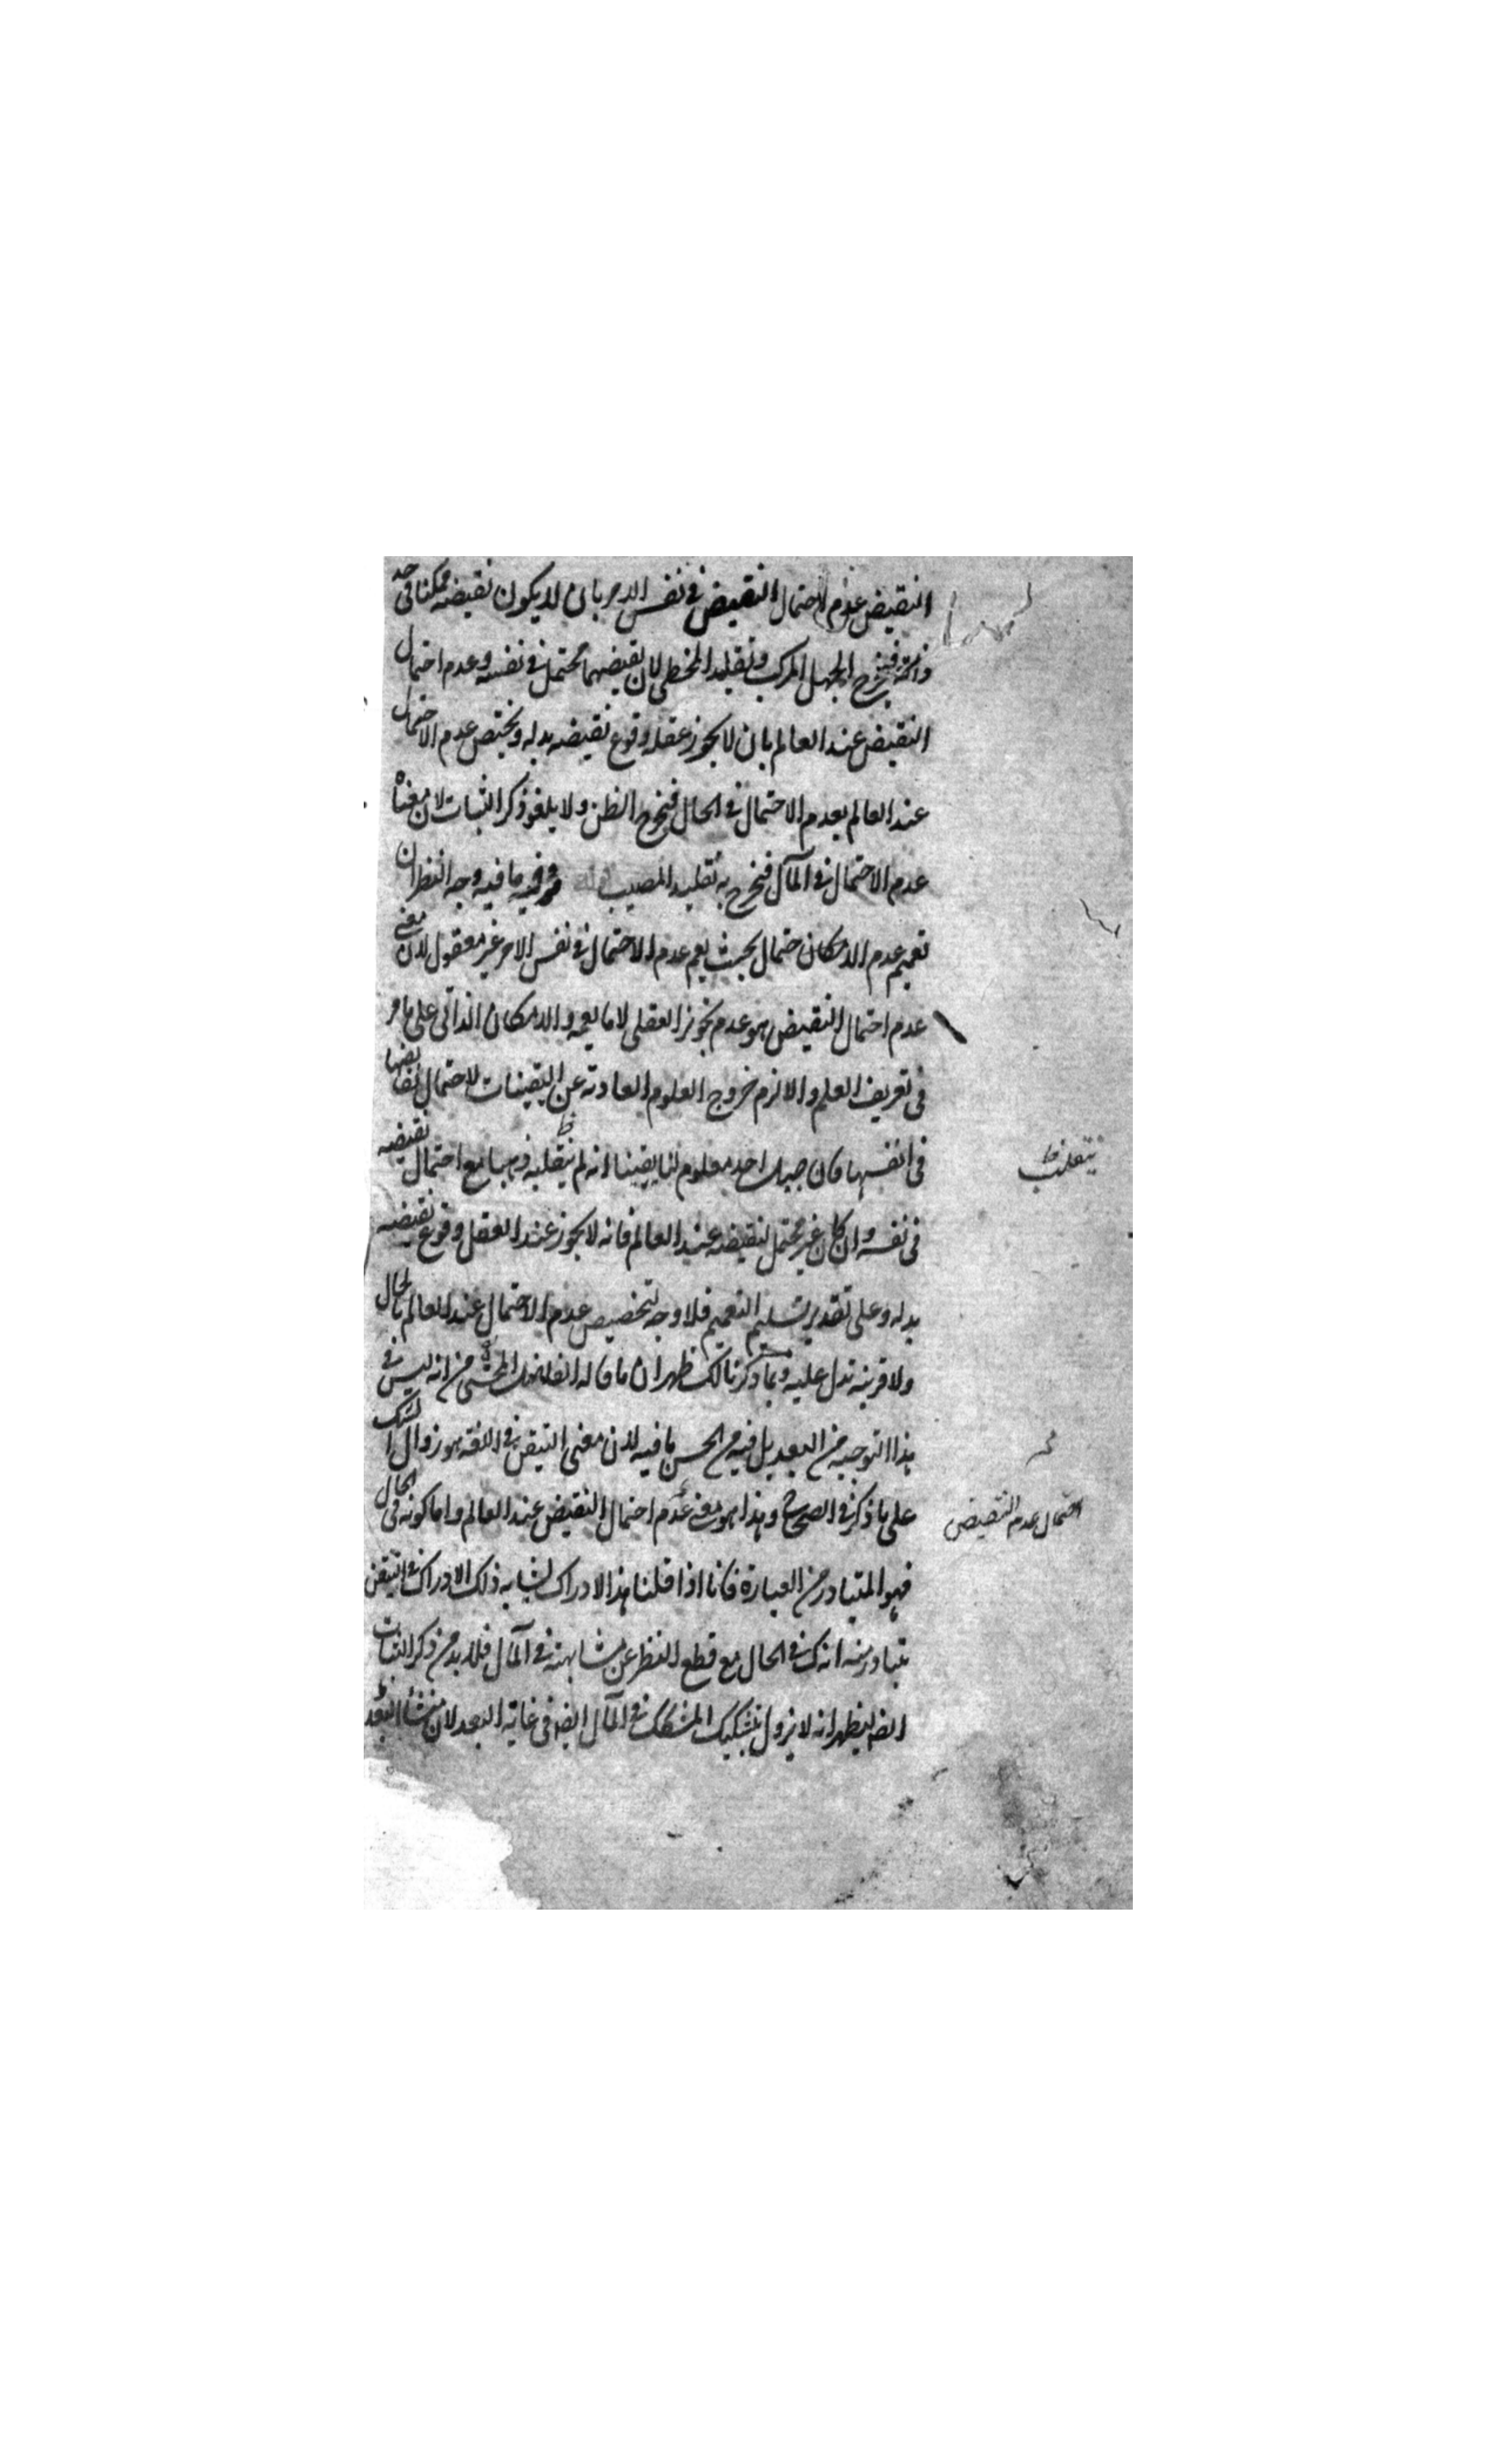 النقيض عدم احتمال النقيض في نفس الامر بان لا يكون نقيضه ممكنا في حد
ذاته فيخرج الجهل المركب وتقليد المخطي لان نقيضهما محتمل في نفسه وعدم احتمال
النقيض عند العالم بان لا يجوز عقله وقوع نقيضه بدله ويختص عدم الاحتمال
عند العالم بعدم الاحتمال في الحال فيخرج الظن ولا يلغو ذكر الثبات لان معناه
عدم الاحتمال في المآل فيخرج به تقليد المصيب قوله وفيه ما فيه وجه النظر ان
تعميم عدم الامكان حتمال بحيث يعم عدم الاحتمال في نفس الامر غير معقول لان معنى
عدم احتمال النقيض هو عدم تجويز العقلي لا ما يعمه والامكان الذاتي على ما مر
في تعريف العلم والا لزم خروج العلوم العادية عن اليقينات لاحتمال نقايضها
في انفسها فان جبل احد معلوم لنا يقينا انه لم ينقلب ذهبا مع احتمال نقيضه
في نفسه وان كان غير محتمل لنقيضه عند العالم فانه لا يجوز عند العقل وقوع نقيضه
بدله وعلى تقدير تسليم التعميم فلا وجه لتخصيص عدم الاحتمال عند العالم بالحال
ولا قرينة تدل عليه وبما ذكرنا لك ظهر ان ما قاله الفاضل المحشي من انه ليس في
هذا التوجيه من البعد بل فيه من الحسن ما فيه لان معنى التيقن في اللغة هو زوال الشك
على ما ذكر في الصحاح وهذا هو معنى عدم احتمال النقيض عند العالم واما كونه في الحال
فهو المتبادر من العبارة فانا اذا قلنا هذا الادراك يشابه ذلك الادراك في التيقن
يتبادر منه انه في الحال مع قطع النظر عن مشابهته في المآل فلا بد من ذكر الثبات
ايضا ليظهر انه لا يزول بتشكيك المشكك في المآل ايضا في غاية البعد لان منشأ البعد
ينقلب
احتمال عدم النقيض